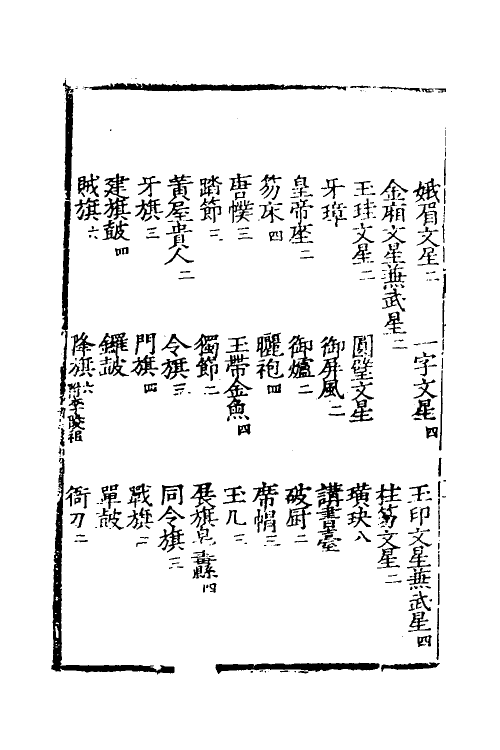 娥眉文星二　一字文星四　玉印文星蕪武星四
金廂文星蕪武星二　柱笏文星二
玉珪文星二　圓璧文星　璜玦八
牙璋　御屏風二　講書臺
皇帝座二　御爐二　破厨二
笏床四　曬袍四　席帽三
唐幞三　玉帶金魚四　玉几三
踏節三　獨節二　展旗皂纛四
黄屋貴人二　令旗三　同令旗三
牙旗三　門旗四　戰旗二
建旗鼓四　鑼鼓　單鼓
賊旗六　降旗六　衙刀二